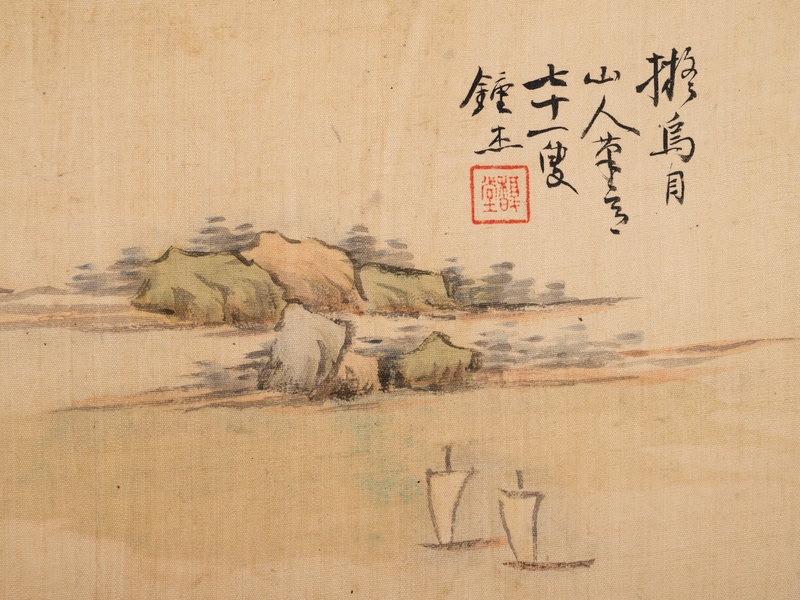 擬烏目
山人筆意
七十一叟
鍾杰